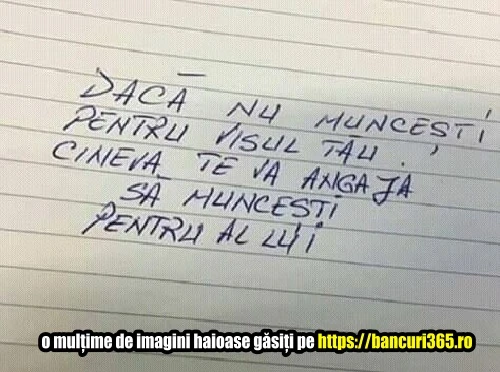 DACĂ NU MUNCEȘTI
PENTRU VISUL TĂU,
CINEVA TE VA ANGAJA
SĂ MUNCEȘTI
PENTRU AL LUI
o mulțime de imagini haioase găsiți pe https://bancuri365.ro